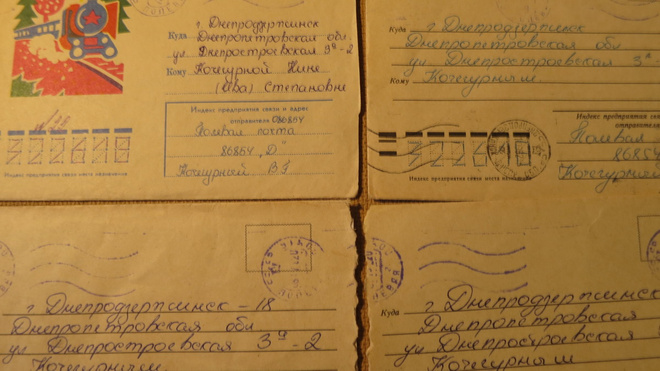 Куда г. Днепродзержинск
Днепропетровская обл
ул Днепростроевская 3а-2
Кому Кочегурной Нине
Степановне
Индекс предприятия связи и адрес
отправителя 86854
Полевая почта
86854 „D"
Кочегурный В
Индекс предприятия связи места назначения
Куда г Днепродзержинск
Днепропетровская обл
ул Днепростроевская 3а-
Кому Кочегурным
Индекс предприятия
отправителя
Полевая
86854
Кочегурный
Индекс предприятия связи места назначения
г Днепродзержинск-18
Днепропетровская обл
ул Днепростроевская 3а-2
Кочегурным
Куда г Днепродзержинск
Днепропетровская
ул Днепростроевская
Кочегурным